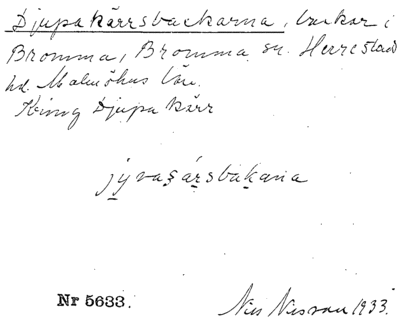 Djupakärrsbackarna, backar i
Bromma, Bromma sn. Herrestad
hd. Malmöhus län.
Kring Djupa kärr
jyvaşársbakana
Nr 5633.
Nils Nessau 1933.